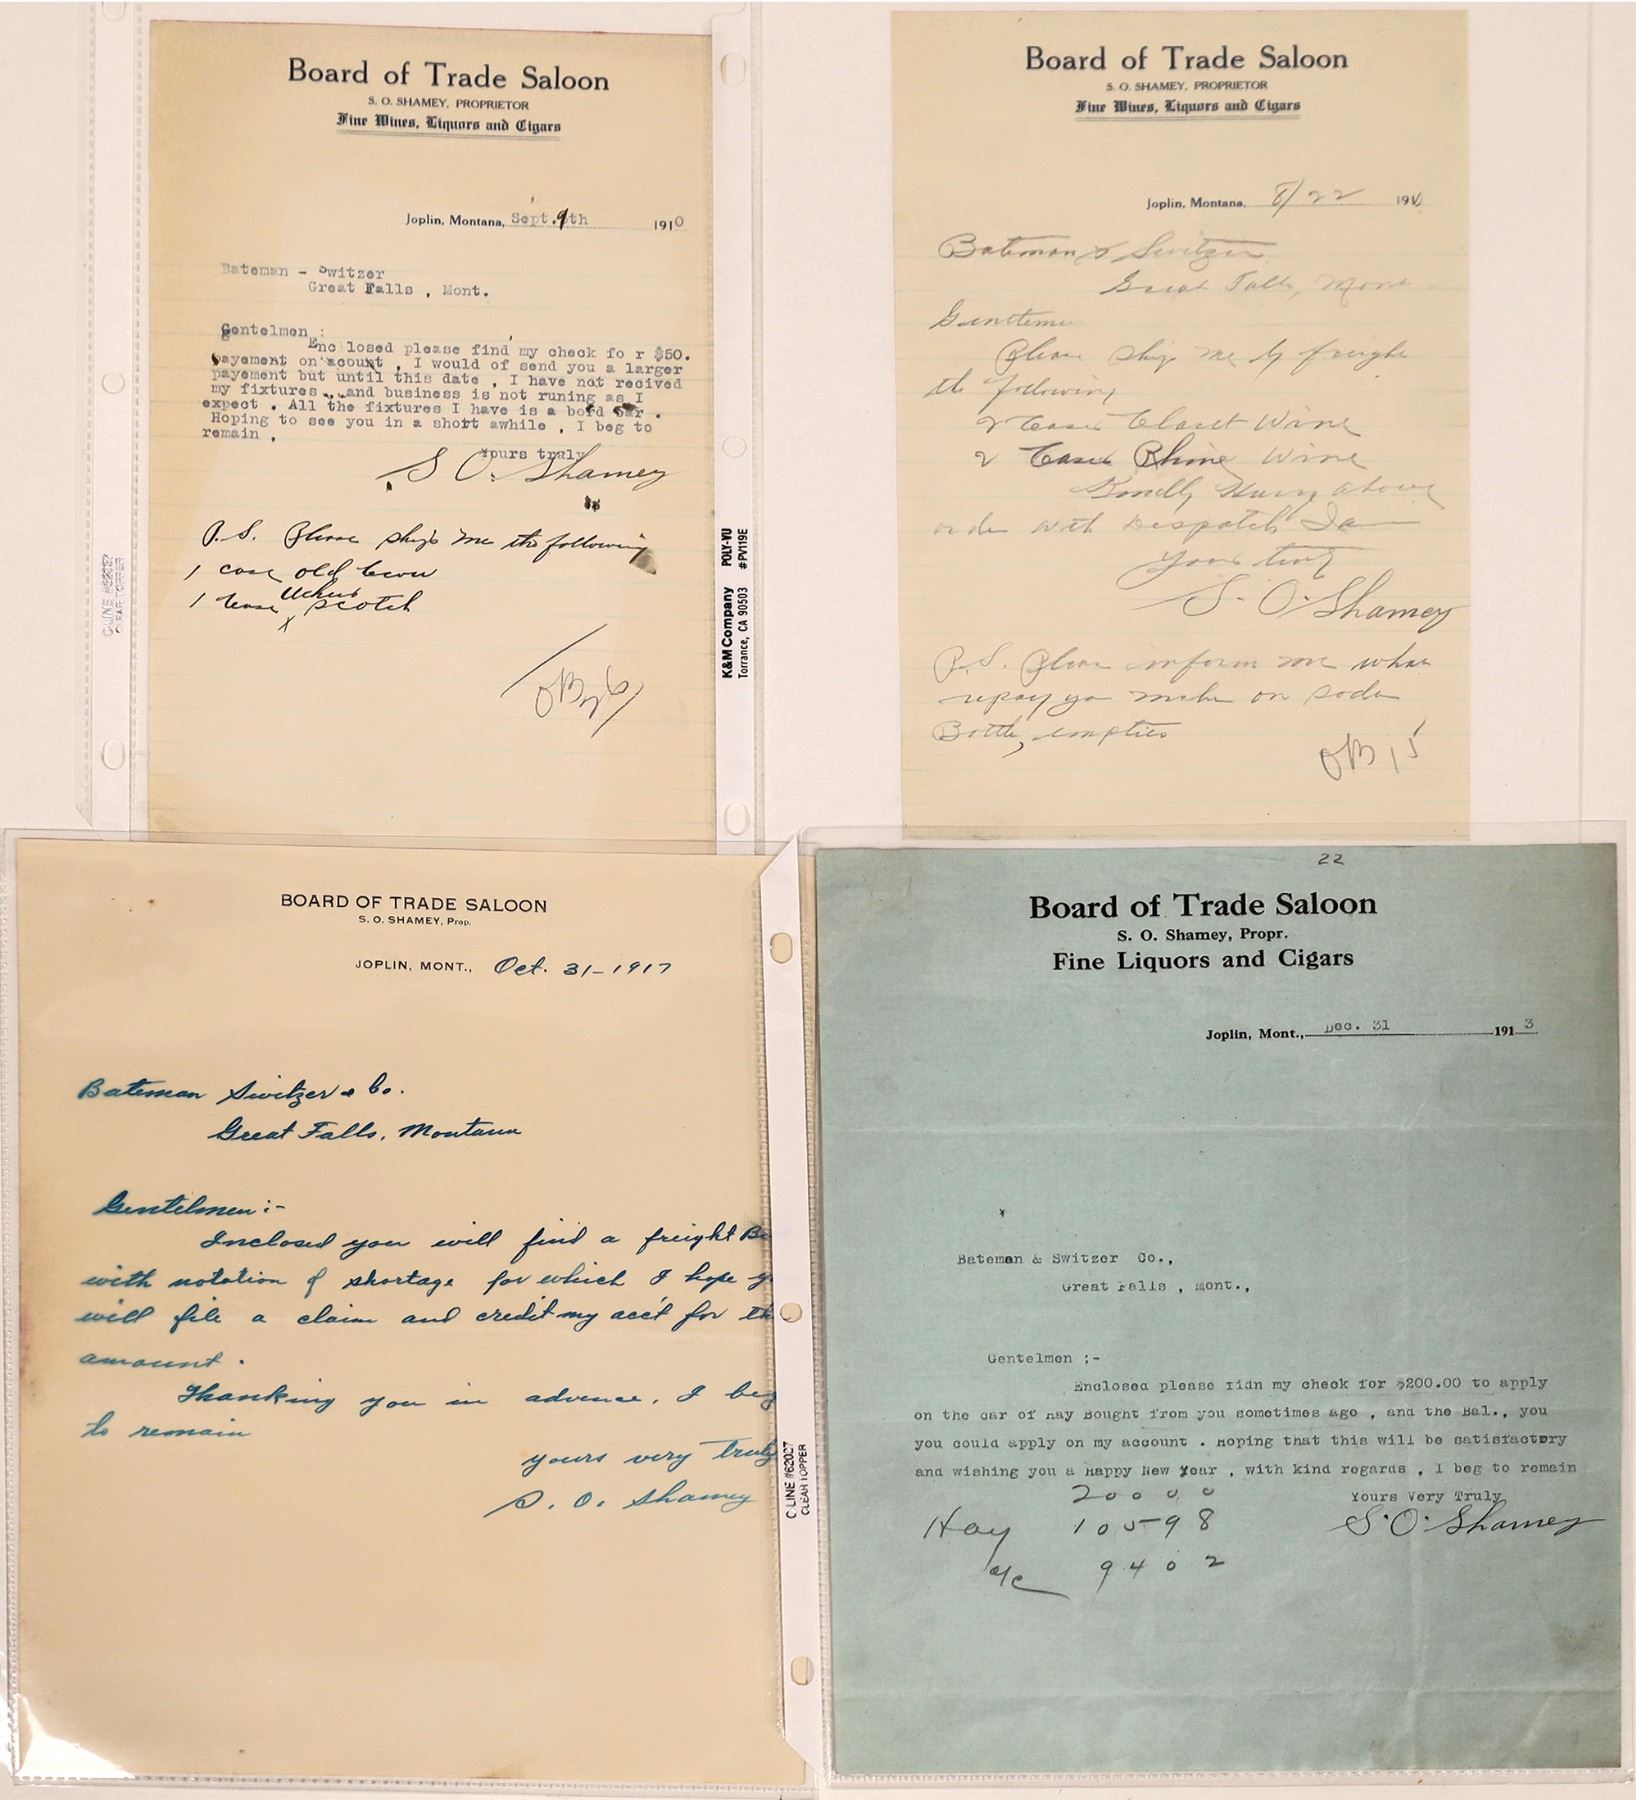 Board of Trade Saloon
S. O. SHAMEY, PROPRIETOR
Fine Wines, Liquors and Cigars
Joplin, Montana, Sept. 9th 1910
Bateman - Switzer
Great Falls , Mont.
Gentelmen :
Enc losed please find my check fo r $50.
payement on acount , I would of send you a larger
payement but until this date , I have not recived
my fixtures , and business is not runing as I
expect . All the fixtures I have is a bord bar .
Hoping to see you in a short awhile , I beg to
remain ,
Yours truly
S O. Shamey
P. S. Please ship me the following
1 case old Crow
1 case Ushers Scotch
x
K&M Company POLY-VU
Torrance, CA 90503 #PV119E
C-LINE #62027
CLEAR TOPPER
Board of Trade Saloon
S. O. SHAMEY, PROPRIETOR
Fine Wines, Liquors and Cigars
Joplin, Montana, 8/22 191
Bateman & Switzer
Great Falls, Mont
Gentlemen
Please ship me by freight
the following
2 Cases Claret Wine
2 Cases Rhine Wine
Kindly Hurry above
order with Dispatch
Yours truly
S. O. Shamey
P.S. Please inform me what
repay you make on soda
Bottle, empties
OB 15
BOARD OF TRADE SALOON
S. O. SHAMEY, Prop.
JOPLIN, MONT., Oct. 31-1917
Bateman Switzer & Co.
Great Falls, Montana
Gentelmen :-
Inclosed you will find a freight B
with notation of shortage for which I hope y
will file a claim and credit my acc't for th
amount .
Thanking you in advence, I beg
to remain
yours very truly
S. O. Shamey
C-LINE #62027
CLEAR TOPPER
22
Board of Trade Saloon
S. O. Shamey, Propr.
Fine Liquors and Cigars
Joplin, Mont., Dec. 31 1913
Bateman & Switzer Co.,
Great Falls , Mont.,
Gentelmen ;-
Enclosed please fidn my check for $200.00 to apply
on the car of Hay Bought from you sometimes ago , and the Bal., you
you could apply on my account . Hoping that this will be satisfactory
and wishing you a Happy New Year , with kind regards , I beg to remain
Yours Very Truly
200 00
Hay 105 98
S. O. Shamey
a/c 94 02